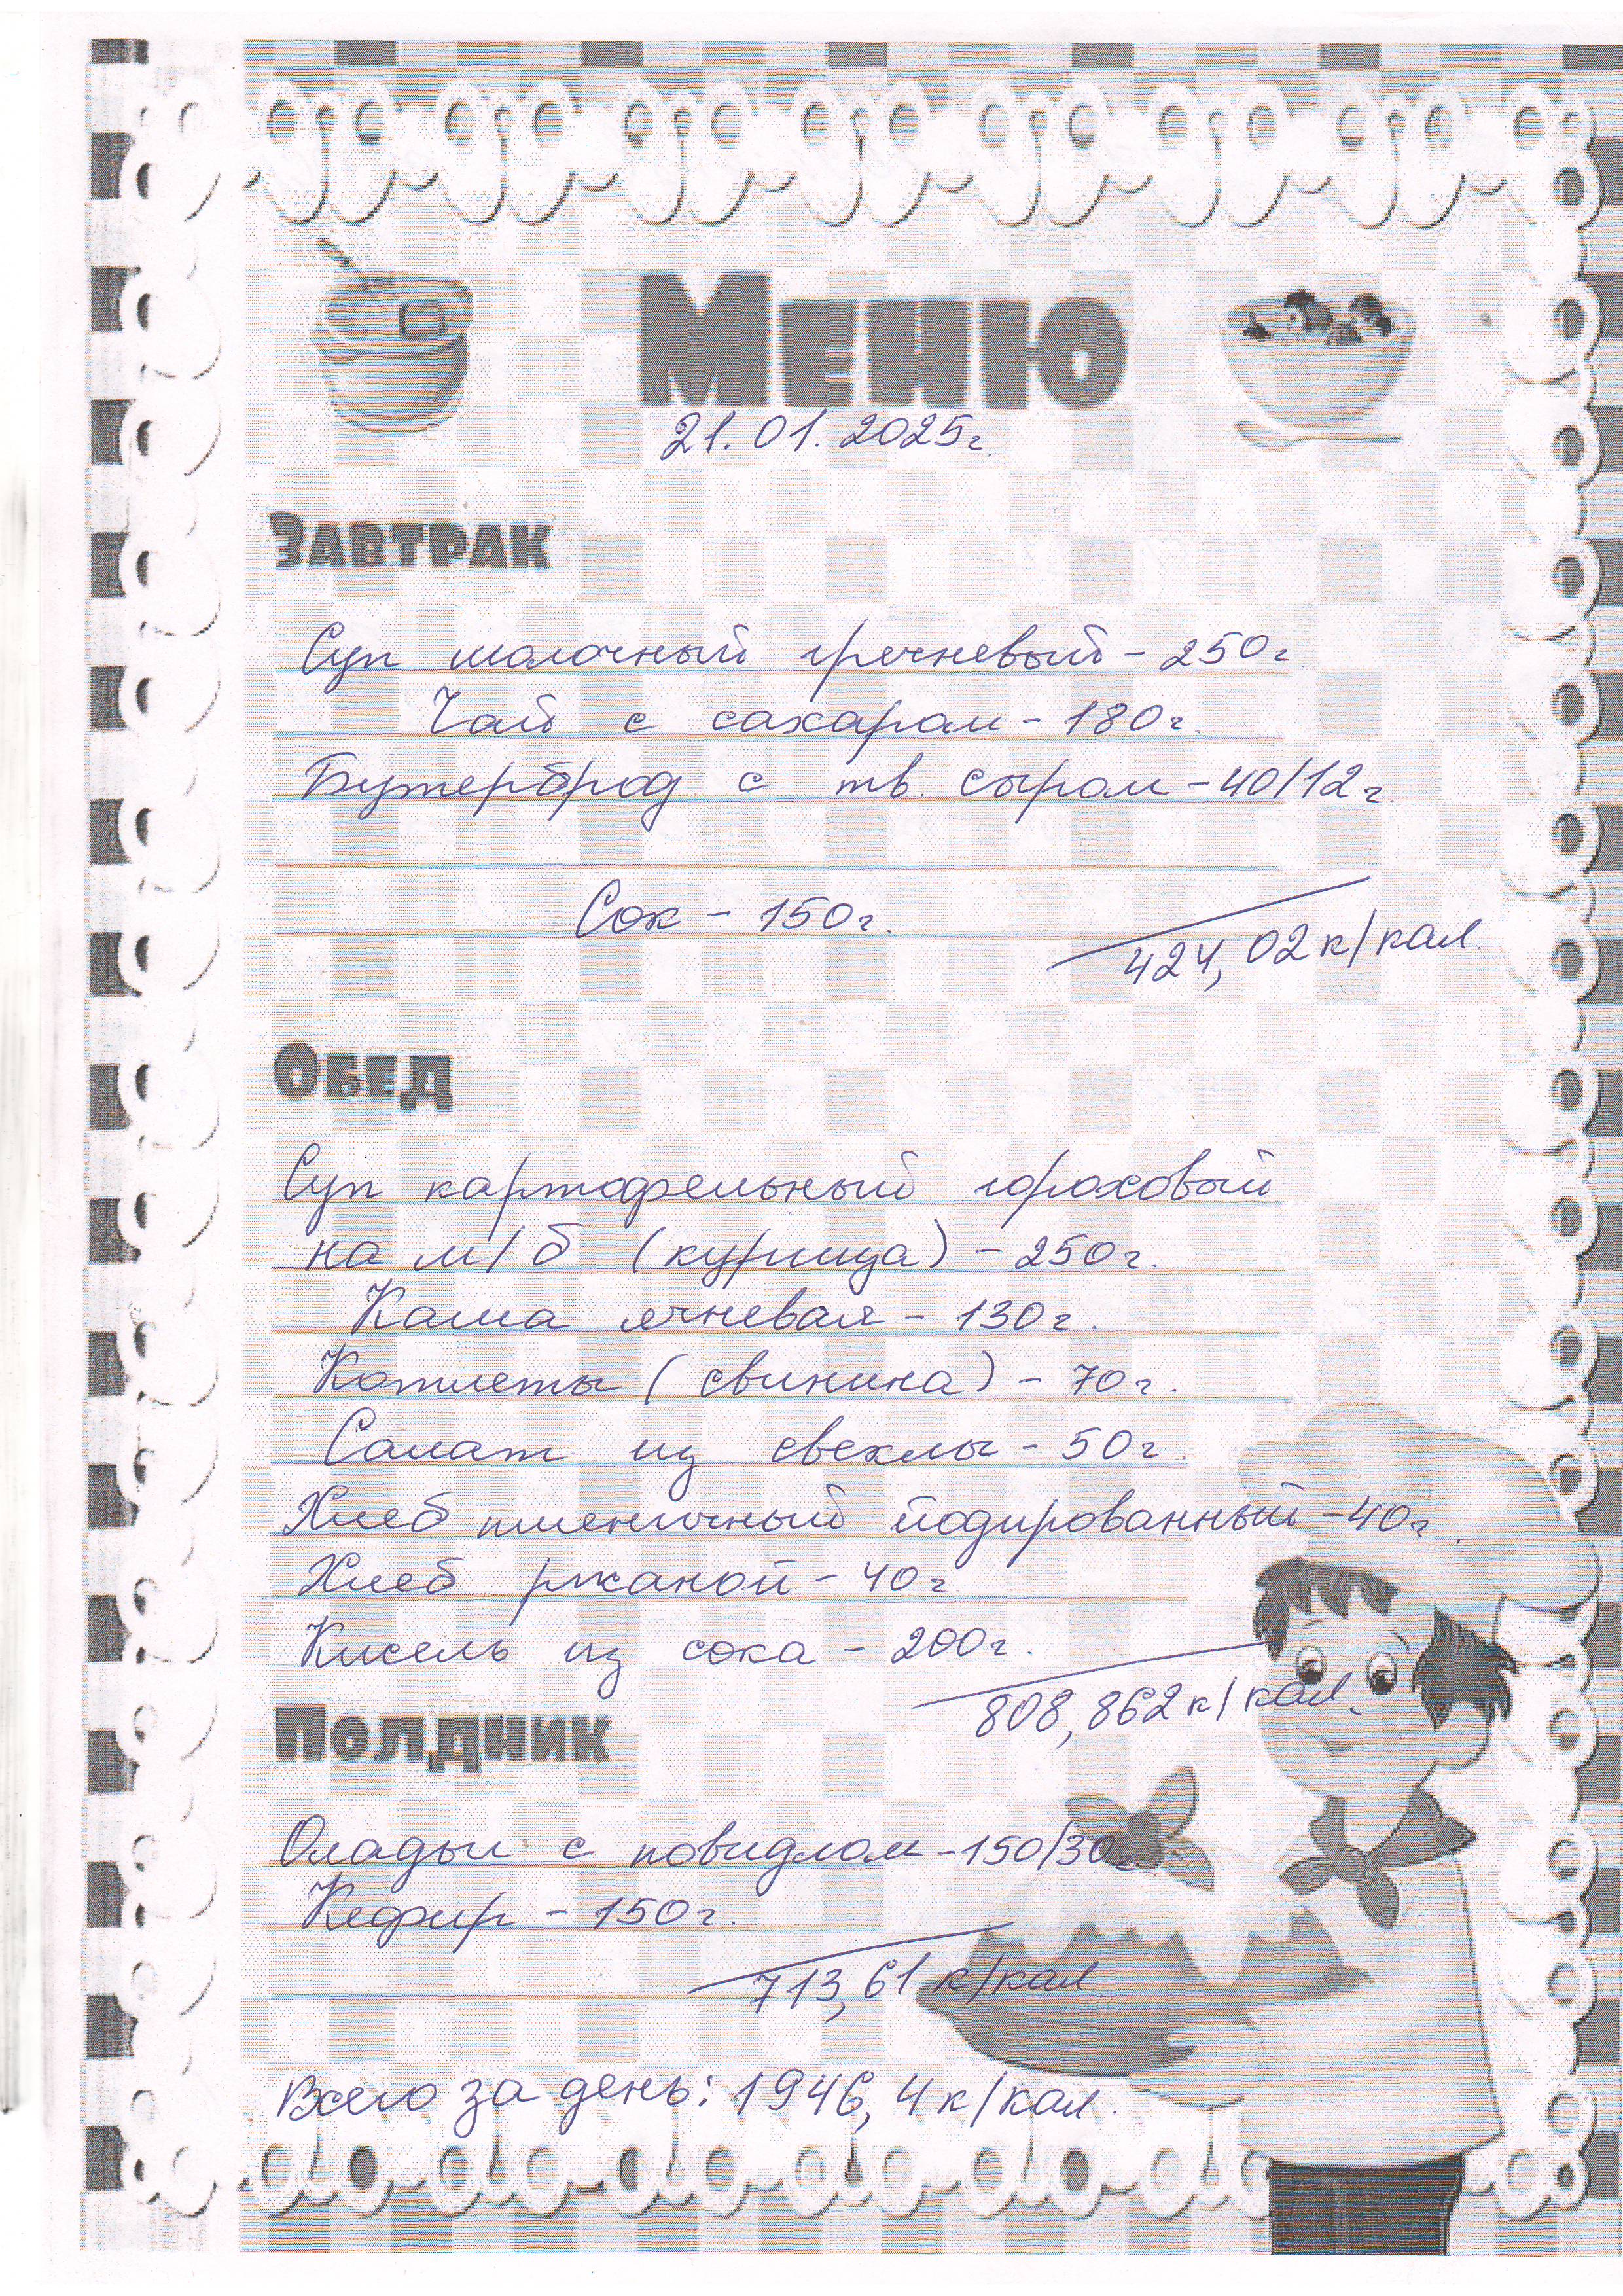 Меню
21.01.2025г.
Завтрак
Суп молочный гречневый - 250г
Чай с сахаром - 180г.
Бутерброд с тв. сыром - 40/12г.
Сок - 150г.
424,02 к/кал.
Обед
Суп картофельный гороховый
на м/б (курица) - 250г.
Каша ячневая - 130г.
Котлеты (свинина) - 70г.
Салат из свеклы - 50г.
Хлеб пшеничный йодированный - 40г.
Хлеб ржаной - 40г
Кисель из сока - 200г.
808,862 к/кал.
Полдник
Оладьи с повидлом - 150/30г
Кефир - 150г.
713,61 к/кал
Всего за день: 1946,4 к/кал.